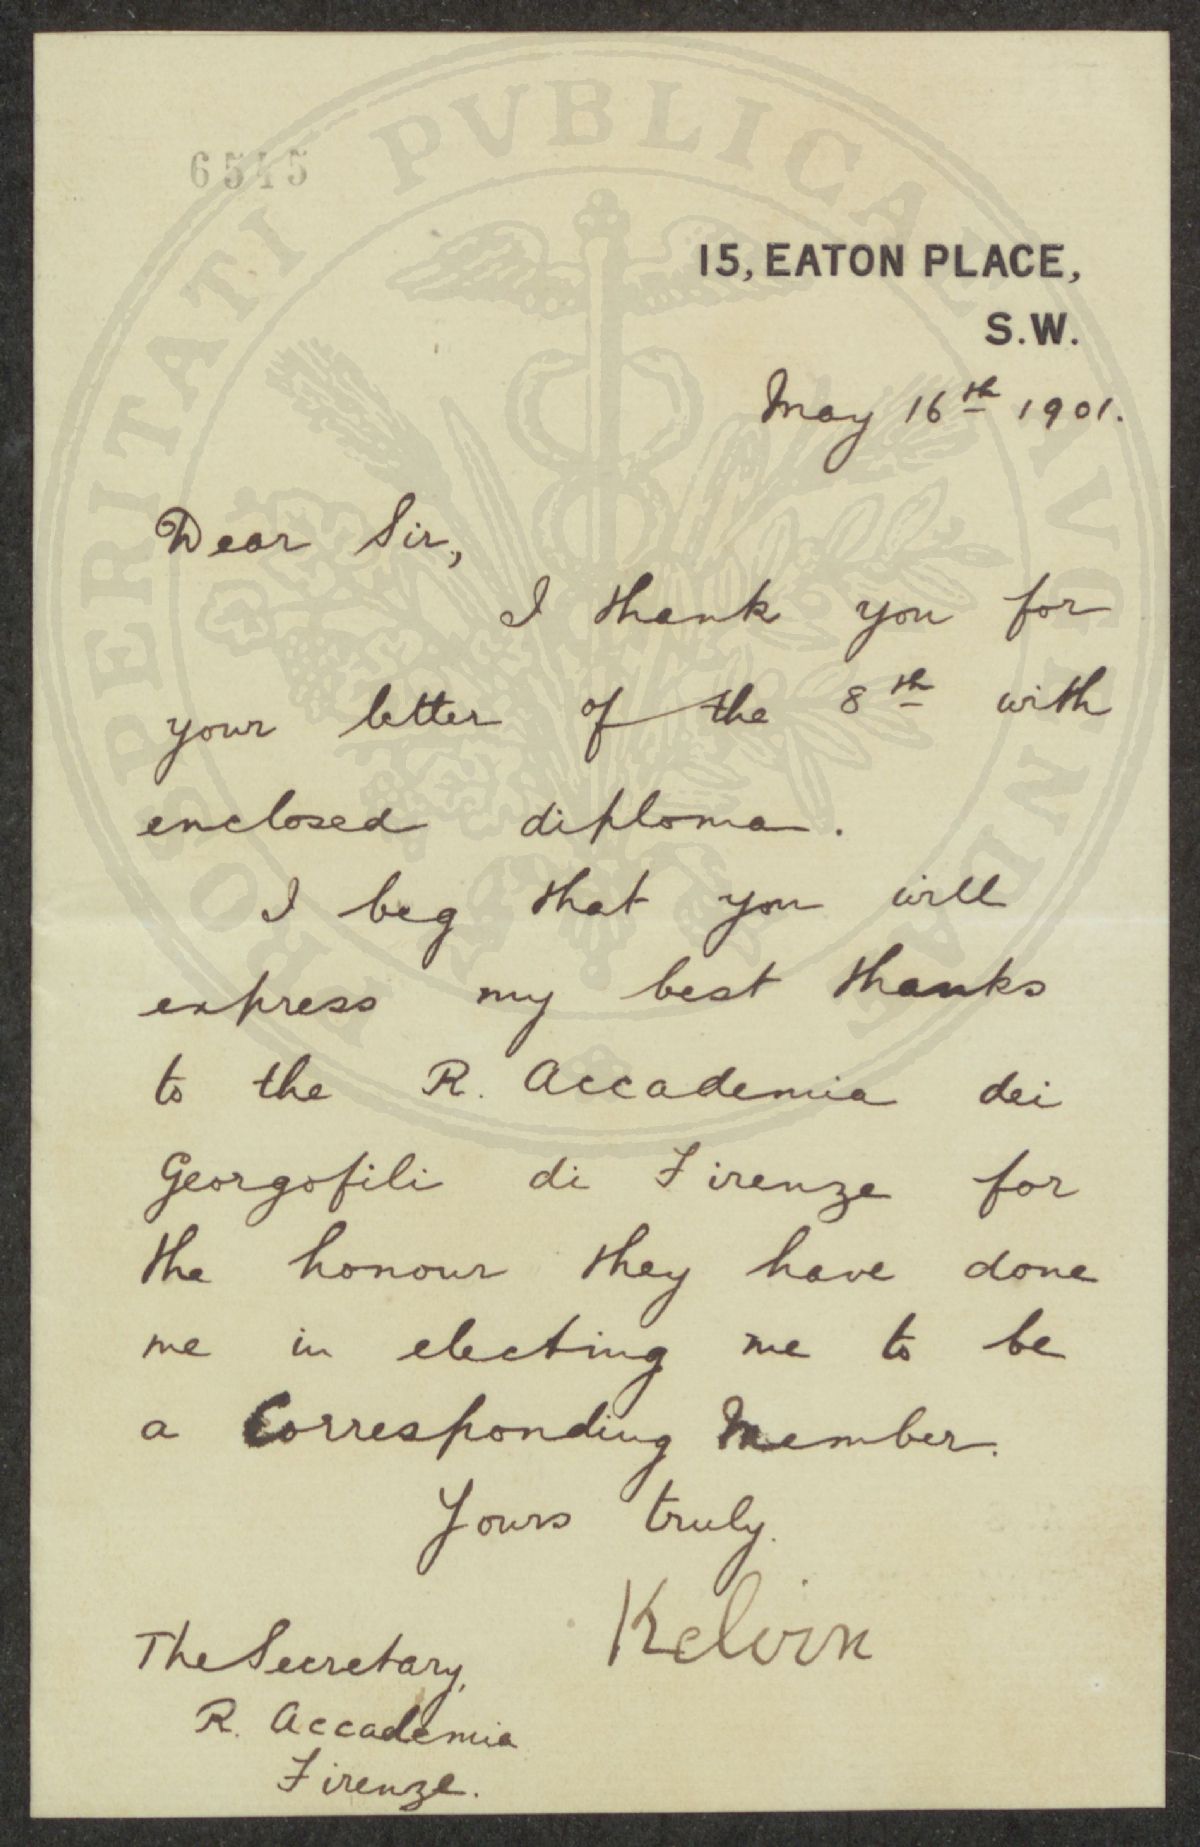 PROSPERITATI PVBLICAE AVGENDAE
6545
15, EATON PLACE,
S.W.
May 16th 1901.
Dear Sir,
I thank you for
your letter of the 8th with
enclosed diploma.
I beg that you will
express my best thanks
to the R. Accademia dei
Georgofili di Firenze for
the honour they have done
me in electing me to be
a Corresponding Member.
Yours truly.
Kelvin
The Secretary,
R. Accademia
Firenze.